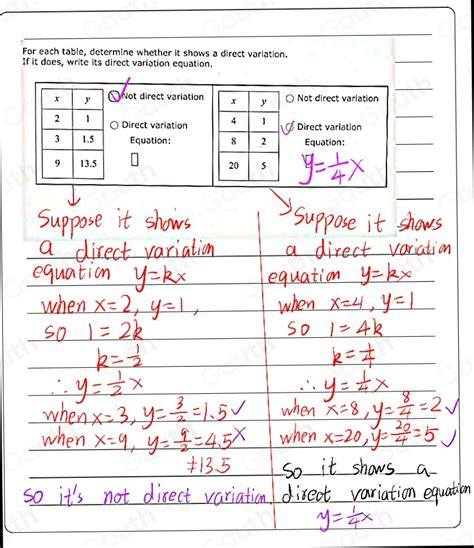 For each table, determine whether it shows a direct variation.
If it does, write its direct variation equation.
x y
2 1
3 1.5
9 13.5
Not direct variation
Direct variation
Equation:
x y
4 1
8 2
20 5
Not direct variation
Direct variation
Equation:
y=1/4x
Suppose it shows
a direct variation
equation y=kx
when x=2, y=1,
so 1=2k
k=1/2
∴ y=1/2x
when x=3, y=3/2=1.5✓
when x=9, y=9/2=4.5X
≠13.5
so it's not direct variation.
Suppose it shows
a direct variation
equation y=kx
when x=4, y=1
so 1=4k
k=1/4
∴ y=1/4x
when x=8, y=8/4=2✓
when x=20, y=20/4=5✓
So it shows a
direct variation equation
y=1/4x